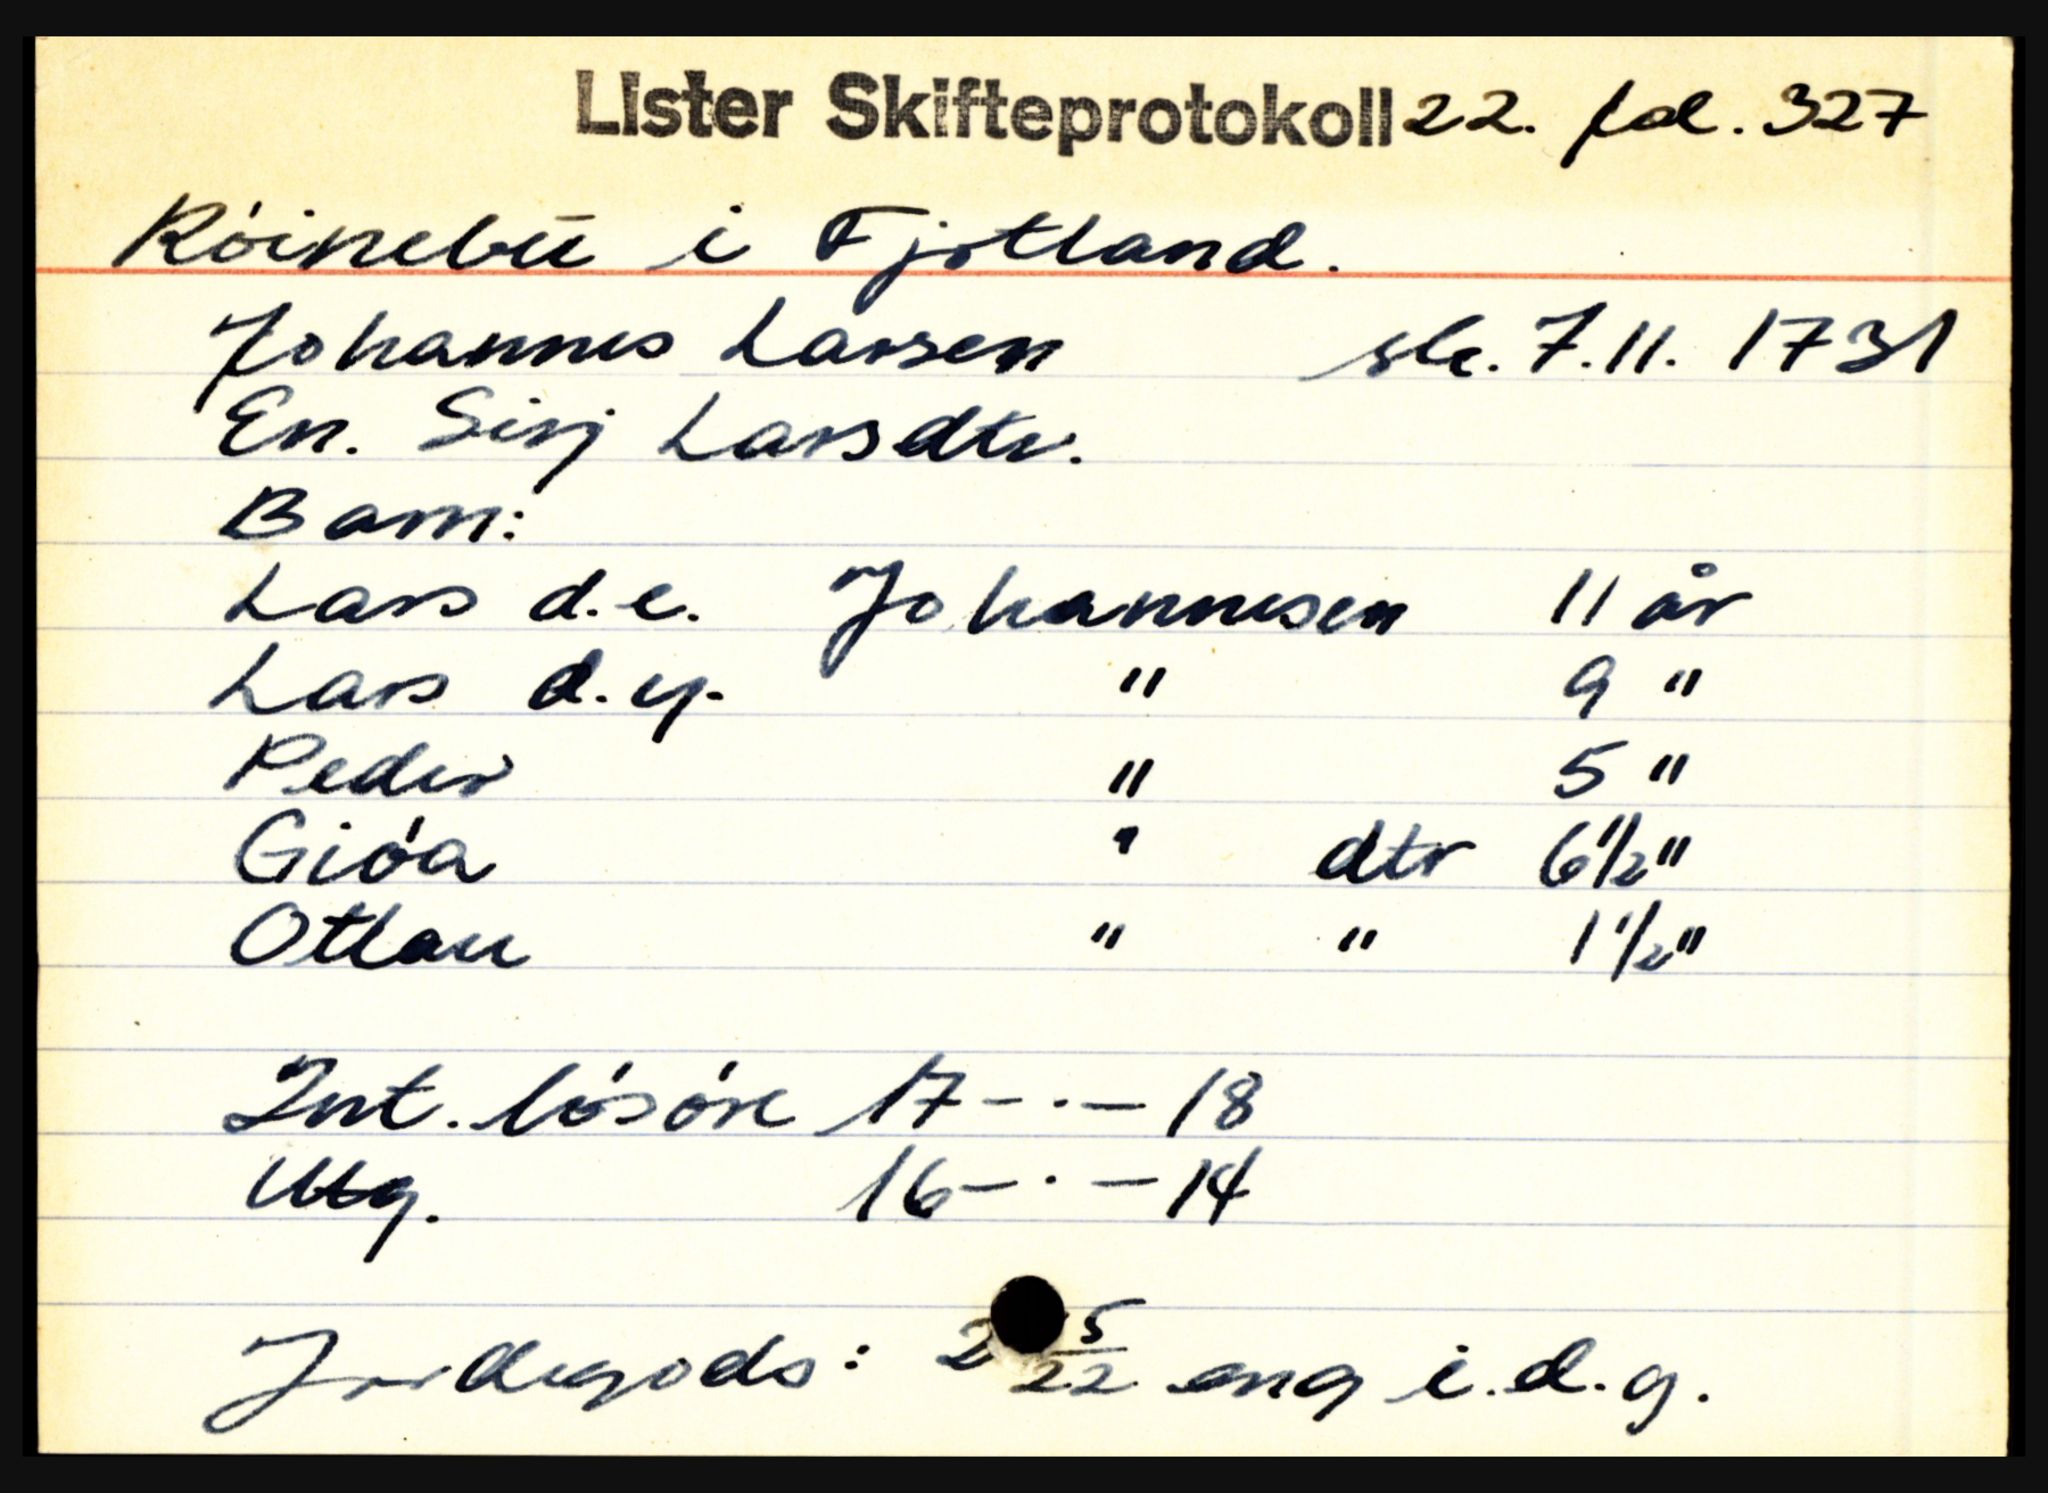 Lister Skifteprotokoll 22. fol. 327
Róinebū i Fjotland.
Johannes Larsen sk. 7.11.1731
En. Sirj Larsdtr.
Barn:
Lars d.e. Johannesen 11 år
Lars d.y. " 9 "
Peder " 5 "
Gióa " dtr 6 1/2 "
Otlau " " 1 1/2 "
Int. lósóre 17-·-18
Utg. 16-·-14
Jordegods: 2 5/22 eng i.d.g.